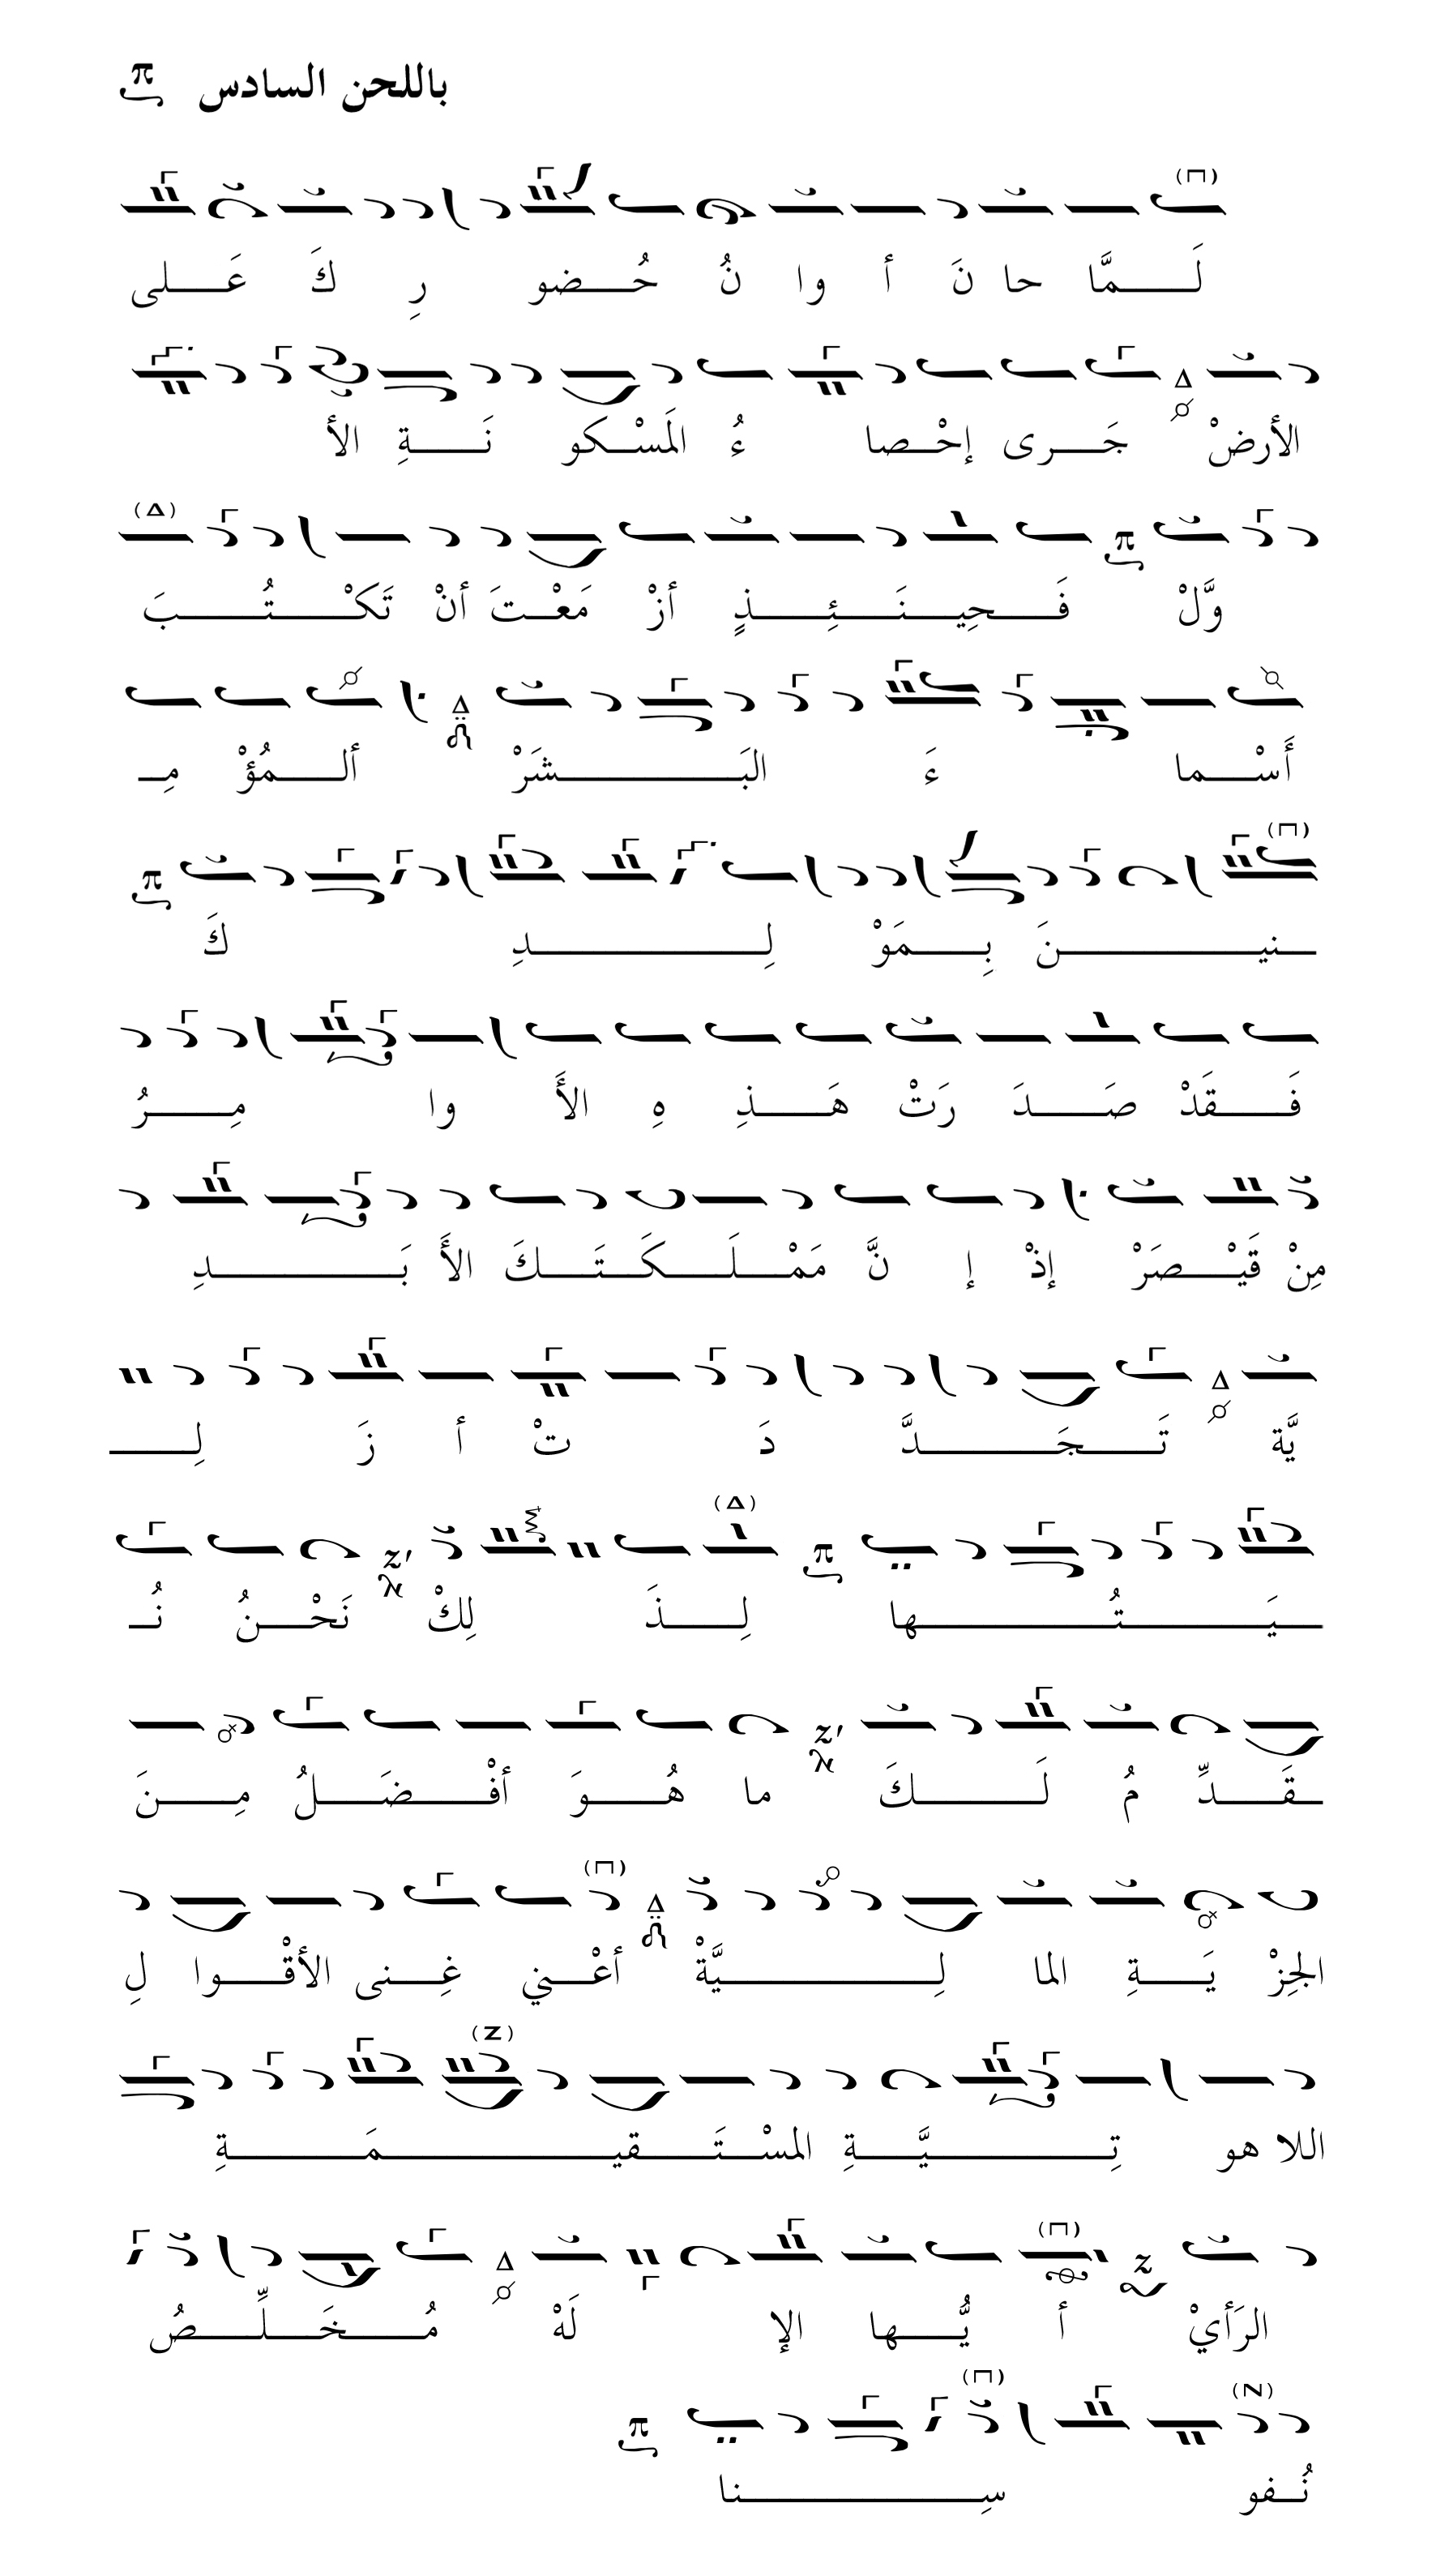 باللحن السادس
لَـــمَّا حانَ أوانُ حُــضورِكَ عَــلى
الأرضْ جَــرى إحْــصاءُ المَسْــكونَــةِ الأ
وَّلْ فَــحِيــنَــئِــذٍ أزْمَعْــتَ أنْ تَكْــتُــبَ
أَسْــماءَ البَــشَرْ ألــمُؤْمِــ
ــنيــنَ بِــمَوْلِــدِكَ
فَــقَدْ صَــدَرَتْ هَــذِهِ الأَوامِــرُ
مِنْ قَيْــصَرْ إذْ إنَّ مَمْــلَــكَــتَــكَ الأَبَــدِ
يَّة تَــجَــدَّدَتْ أزَلِــ
ــيَــتُــها لِــذَلِكْ نَحْــنُ نُــ
ــقَــدِّمُ لَــكَ ما هُــوَ أفْــضَــلُ مِــنَ
الجِزْيَــةِ المالِــيَّةْ أعْــني غِــنى الأقْــوالِ
اللاهوتِــيَّــةِ المسْــتَــقيــمَــةِ
الرَأيْ أيُّــها الإلَهْ مُــخَــلِّــصُ
نُــفوسِــنا